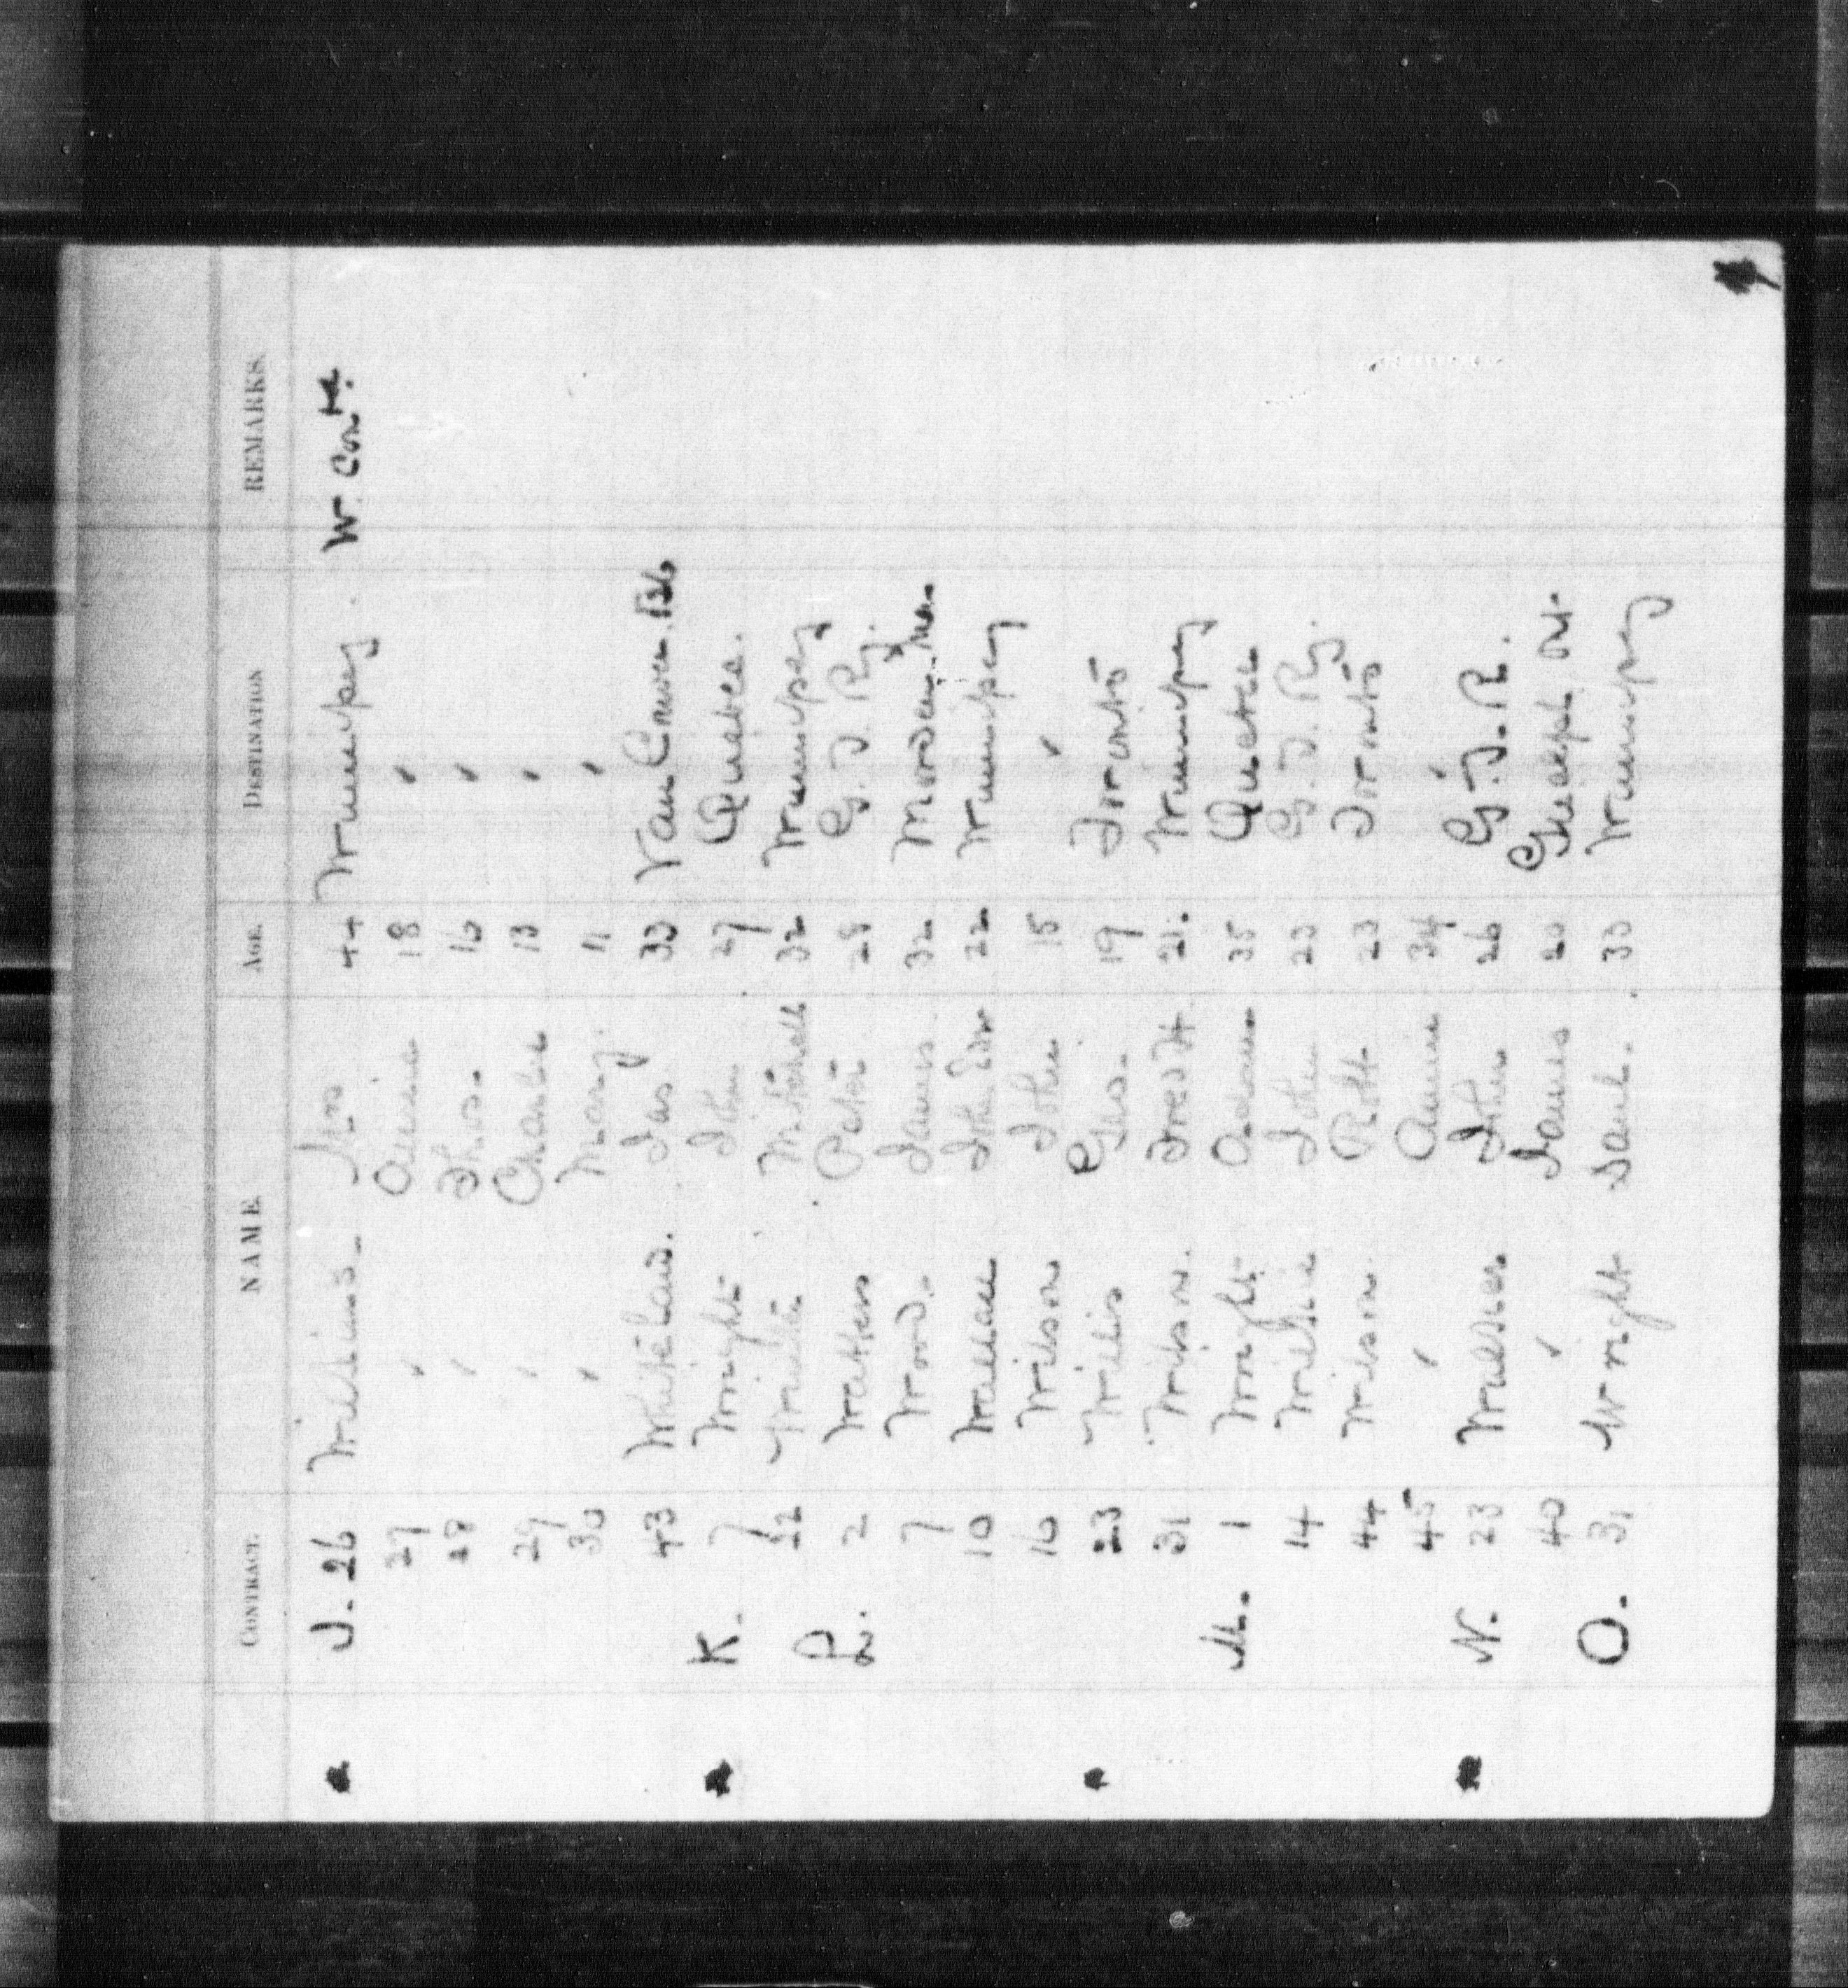 CONTRACT. NAME. AGE. DESTINATION REMARKS.
J. 26 Jno 44 Winnipeg. W Cont.
27 " Annie 18 "
28 " Thos. 16 "
29 " Charlie 13 "
30 " Mary. 11 "
43 Whitelaw. Jas 33 Van Couver. B.C.
K. 7 Wright John 27 Quebec.
22 Mitchell 32 Winnipeg
L. 2 Watters Peter 28 G. T. Ry.
7 Wood. James. 32 Morden. Man.
10 Wallace John 22 Winnipeg
16 Wilson John 15 "
23 Willis Geo. 19 Toronto
31 Wilson. Fred H. 21. Winnipeg
M. 1 Wright Adam 35 Quebec
14 Wilkie John 23 G. T. Ry.
44 Wilson. Robt 23 Toronto
45 " Annie 34 "
N. 23 John 26 G. T. R.
40 " James 20 Guelph Ont.
O. 31 Wright Saml. 30 Winnipeg